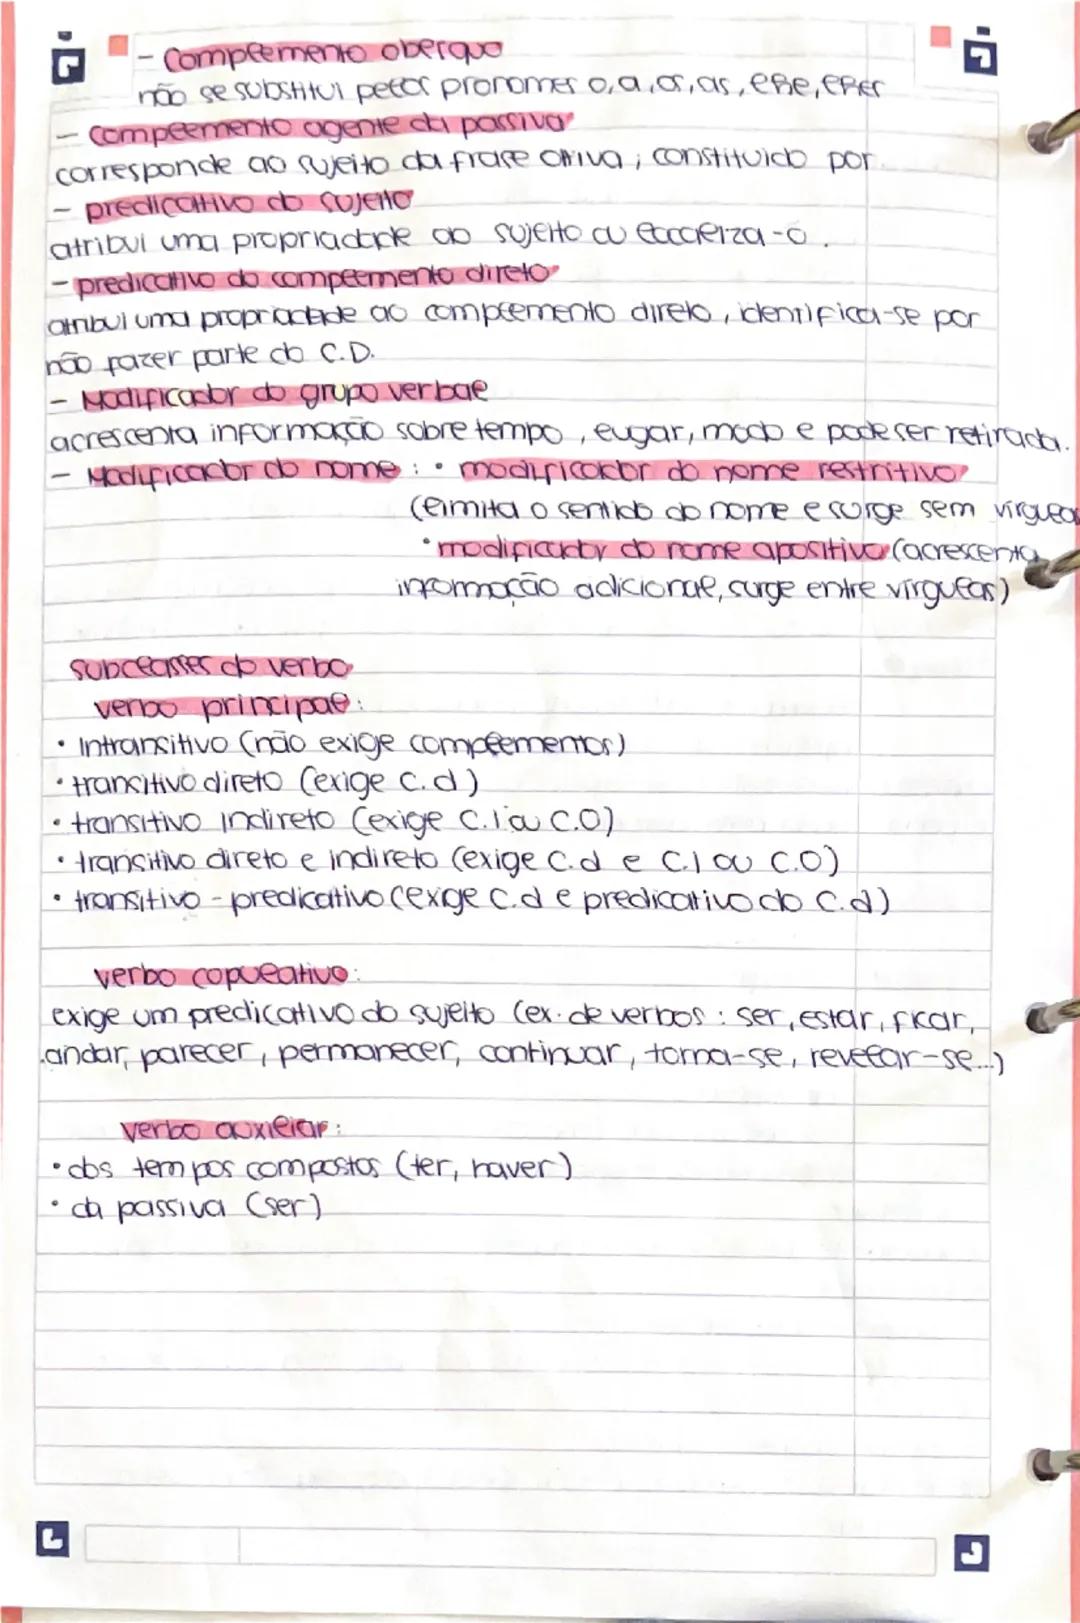 - Complemento oblíquo
não se substitui pelos pronomes o, a, os, as, lhe, lhes
- Complemento agente da passiva
corresponde ao sujeito da frase ativa, constituído por
- predicativo do sujeito
atribui uma propriedade ao sujeito ou localiza-o.
- predicativo do complemento direto
atribui uma propriedade ao complemento direto, identifica-se por
não fazer parte do C.D.
- Modificador do grupo verbal
acrescenta informação sobre tempo, lugar, modo e pode ser retirada.
- Modificador do nome : • modificador do nome restritivo
(limita o sentido do nome e surge sem vírgulas
• modificador do nome apositivo (acrescenta
informação adicional, surge entre vírgulas)
subclasses do verbo
verbo principal:
• Intransitivo (não exige complementos)
• transitivo direto (exige C.d)
• transitivo indireto (exige C.i ou C.O)
• transitivo direto e indireto (exige C.d e C.I ou C.O)
• transitivo - predicativo (exige C.d e predicativo do C.d)
verbo copulativo:
exige um predicativo do sujeito (ex. de verbos : ser, estar, ficar,
andar, parecer, permanecer, continuar, torna-se, revelar-se...)
verbo auxiliar:
• dos tempos compostos (ter, haver)
• da passiva (ser)